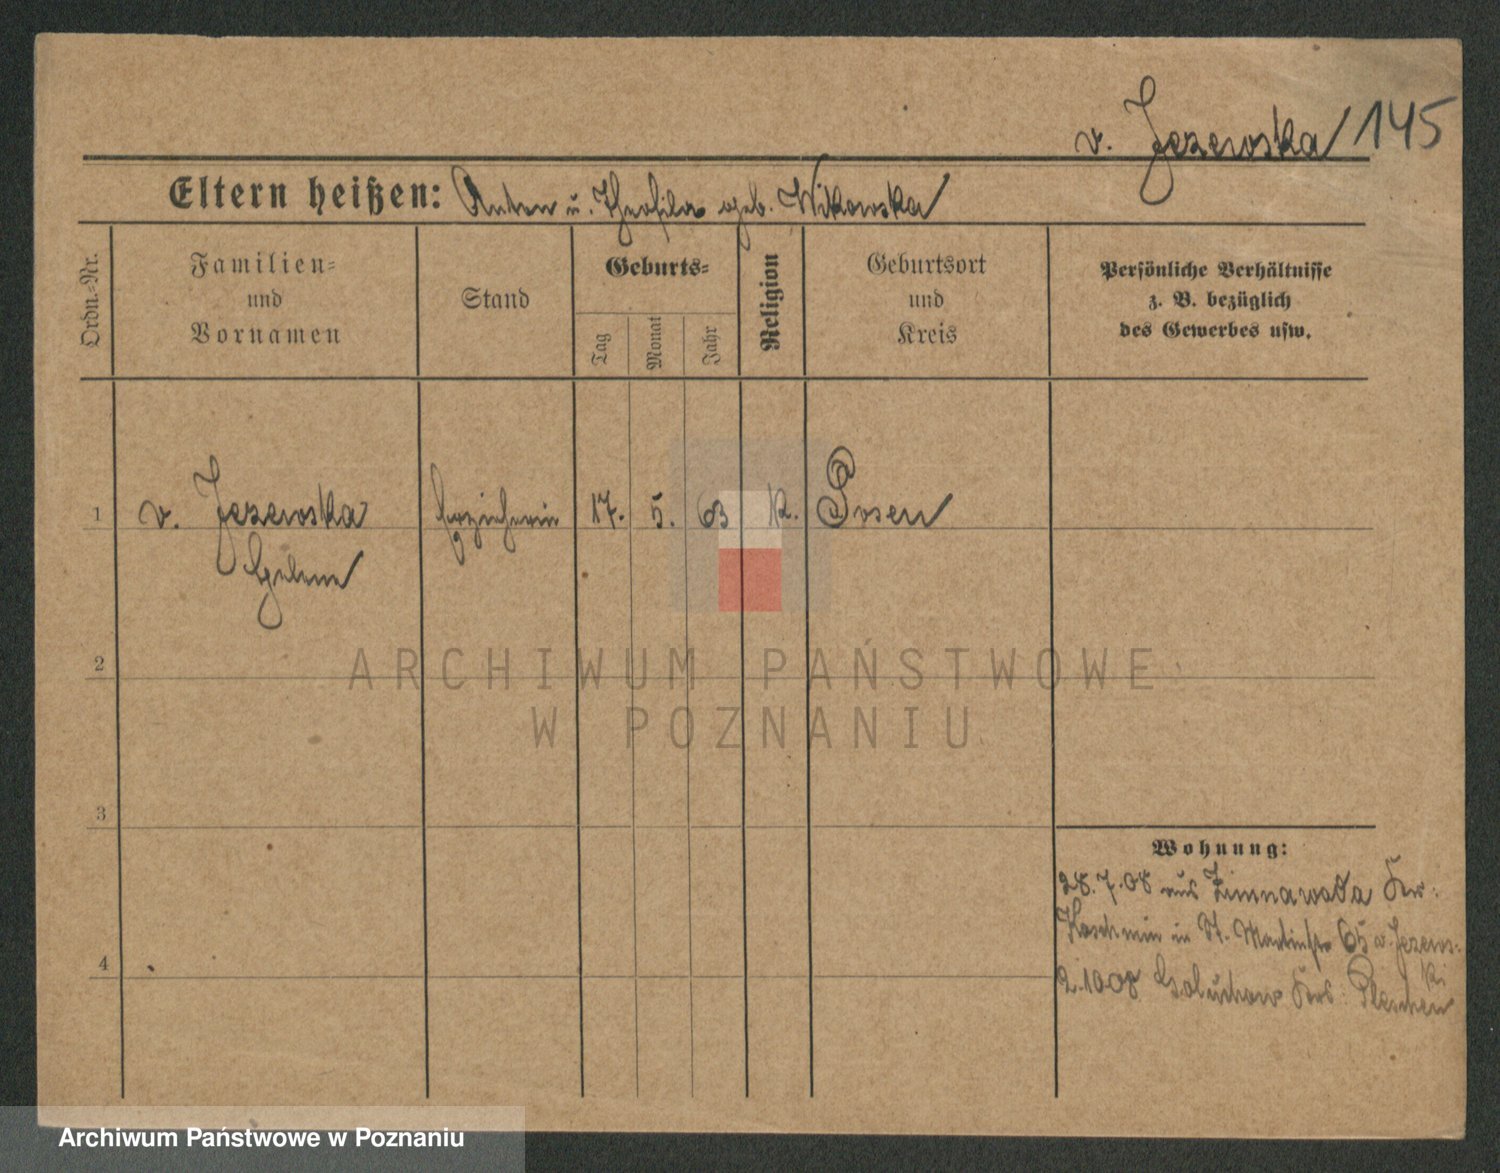 v. Jezewska / 145
Eltern heißen: Anton u. Theofila geb. Wikowska
Ordn.-Nr.
Familien-
und
Vornamen
Stand
Geburts-
Tag
Monat
Jahr
Religion
Geburtsort
und
Kreis
Persönliche Verhältnisse
z. B. bezüglich
des Gewerbes usw.
1 v. Jezewska Erzieherin 17. 5. 63 K. Posen
Helene
2
3
4
Wohnung:
28.7.08 aus Zimnawoda Krs:
Koschmin in St. Martinstr 65 v. Jezews-
ki
2.10 08 Goluchow Krs: Pleschen
ARCHIWUM PAŃSTWOWE
W POZNANIU
Archiwum Państwowe w Poznaniu